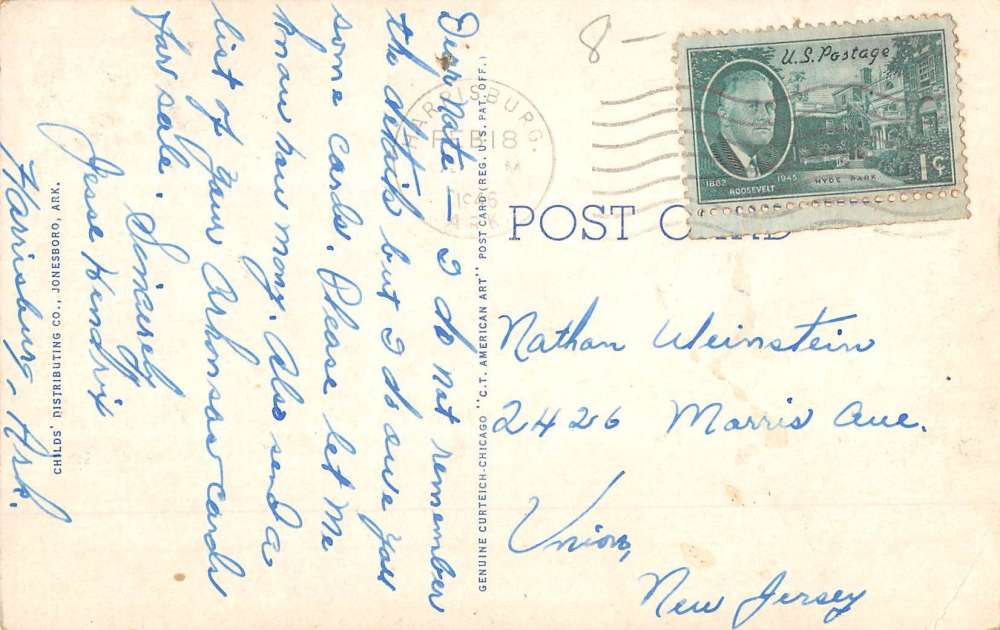 Dear Nate — I do not remember
the details but I do owe you
some cards. Please let me
know how many. Also send a
list of your Arkansas cards
for sale.
Sincerely
Jesse Hendrix
Harrisburg, Ark.
CHILDS' DISTRIBUTING CO., JONESBORO, ARK.
GENUINE CURTEICH-CHICAGO "C.T. AMERICAN ART" POST CARD (REG. U.S. PAT. OFF.)
8—
HARRISBURG.
FEB 18
M
1946
ARK
U.S. Postage
1882 1945
ROOSEVELT
HYDE PARK
1¢
POST CARD
Nathan Weinstein
2426 Morris Ave.
Union,
New Jersey